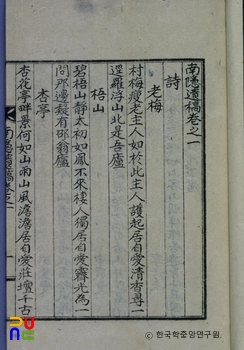 南隱遺稿卷之一
詩
老梅
村梅瘦老主人如於此主人護起居自愛清香尋一
逕羅浮山北是吾廬
梧山
碧梧山靜太初如鳳不來棲人獨居自愛霽光爲一
問那邊疑有邵翁廬
杏亭
杏花亭畔景何如山雨山風澹澹居自愛莊壇千古
南隱遺稿卷之一
한국학중앙연구원